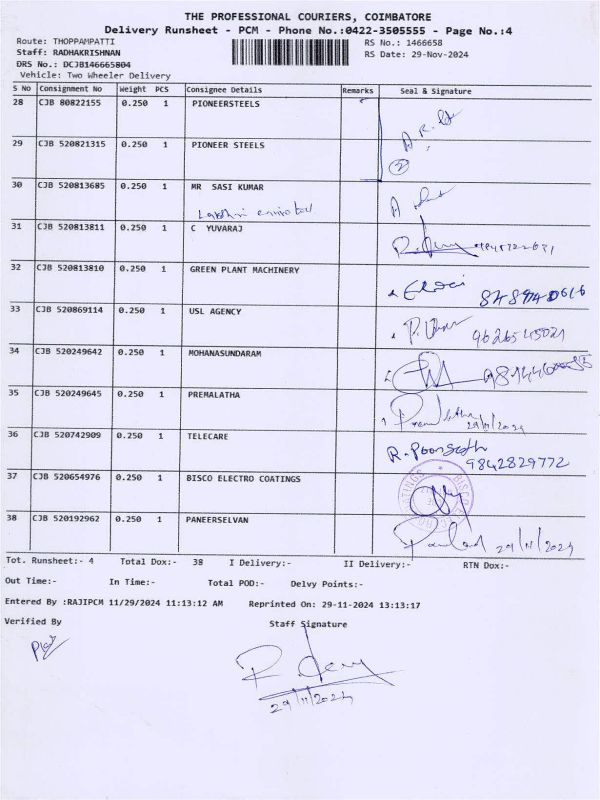 THE PROFESSIONAL COURIERS, COIMBATORE
Delivery Runsheet - PCM - Phone No.:0422-3505555 - Page No.:4
Route: THOPPAMPATTI RS No.: 1466658
Staff: RADHAKRISHNAN RS Date: 29-Nov-2024
DRS No.: DCJB146665804
Vehicle: Two Wheeler Delivery
S No Consignment No Weight PCS Consignee Details Remarks Seal & Signature
28 CJB 80822155 0.250 1 PIONEERSTEELS
29 CJB 520821315 0.250 1 PIONEER STEELS
2
30 CJB 520813685 0.250 1 MR SASI KUMAR
31 CJB 520813811 0.250 1 C YUVARAJ
32 CJB 520813810 0.250 1 GREEN PLANT MACHINERY
33 CJB 520869114 0.250 1 USL AGENCY
9626545021
34 CJB 520249642 0.250 1 MOHANASUNDARAM
35 CJB 520249645 0.250 1 PREMALATHA
29/11/2024
36 CJB 520742909 0.250 1 TELECARE
9842829772
37 CJB 520654976 0.250 1 BISCO ELECTRO COATINGS
38 CJB 520192962 0.250 1 PANEERSELVAN
29/11/2024
Tot. Runsheet:- 4 Total Dox:- 38 I Delivery:- II Delivery:- RTN Dox:-
Out Time:- In Time:- Total POD:- Delvy Points:-
Entered By :RAJIPCM 11/29/2024 11:13:12 AM Reprinted On: 29-11-2024 13:13:17
Verified By Staff Signature
29/11/2024